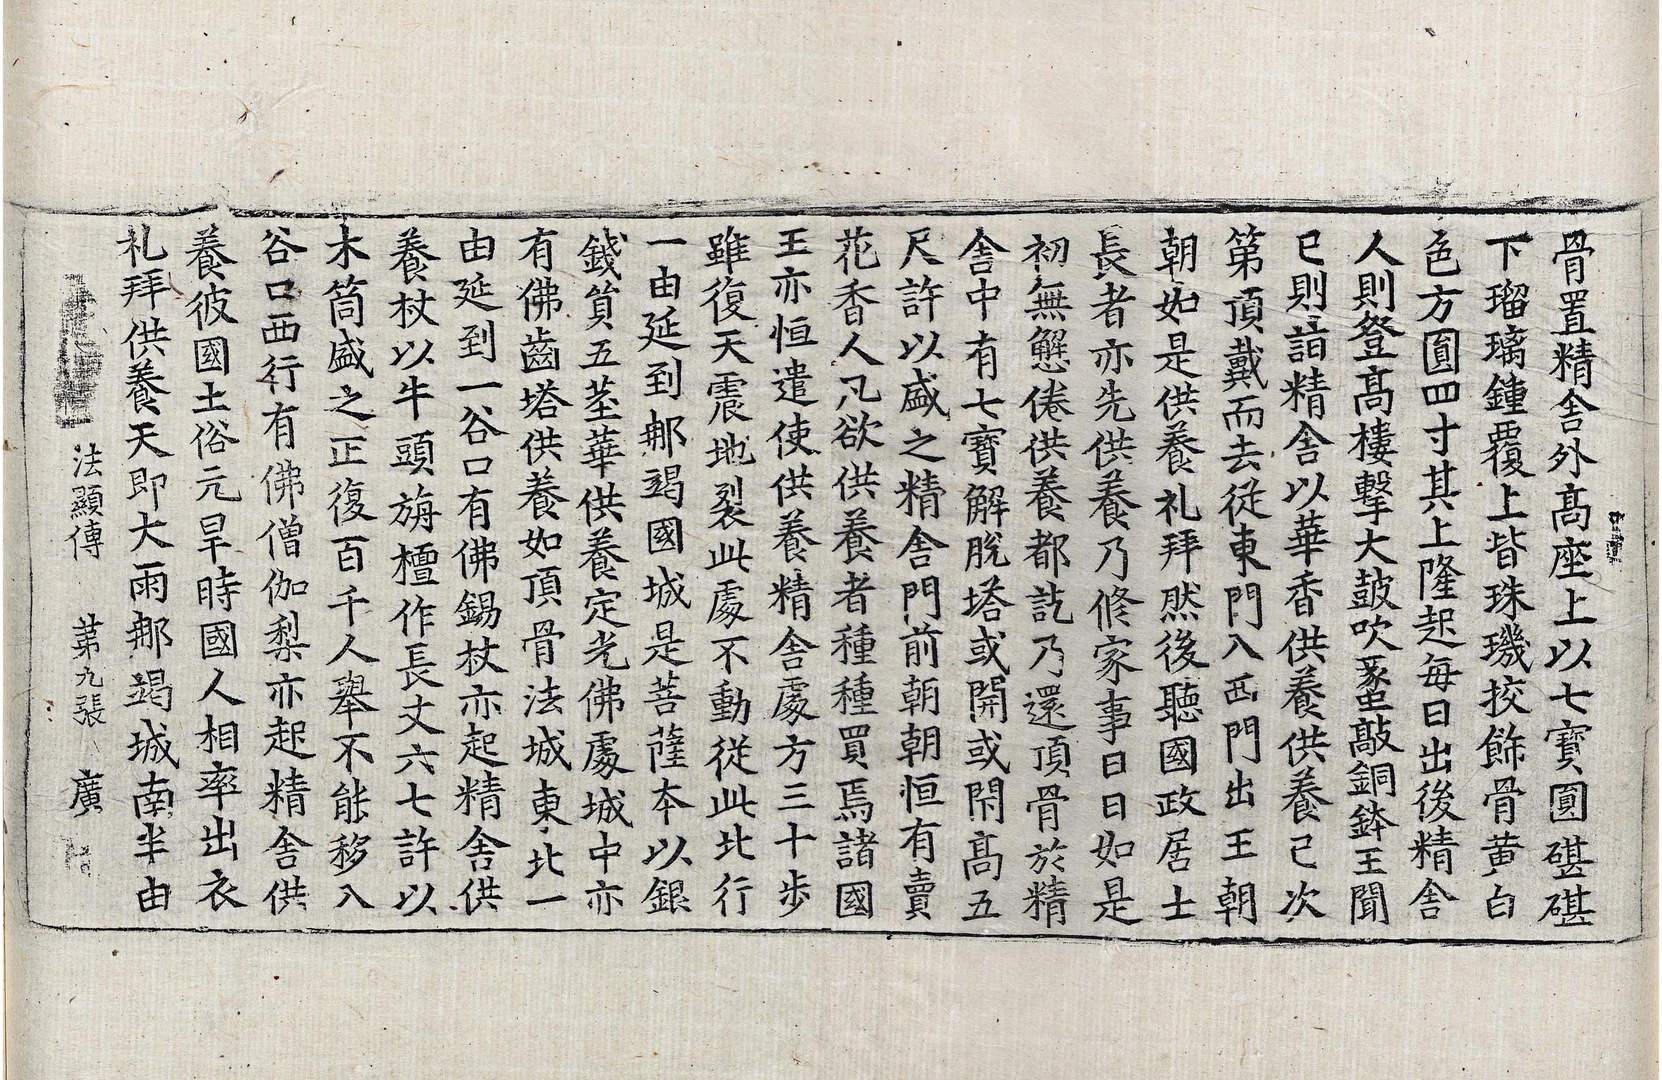 骨置精舎外髙座上以七寶圎碪碪
下瑠璃鍾覆上皆珠璣挍飾骨黄白
色方圎四寸其上隆起每日出後精舎
人則登髙樓擊大皷吹䗍敲銅鉢王聞
已則詣精舎以華香供養供養已次
第頂戴而去從東門入西門出王朝
朝如是供養礼拜然後聽國政居士
長者亦先供養乃修家事日日如是
初無懈倦供養都訖乃還頂骨於精
舎中有七寶解脫塔或開或閇髙五
尺許以盛之精舎門前朝朝恒有賣
花香人凡欲供養者種種買焉諸國
王亦恒遣使供養精舎處方三十歩
雖復天震地裂此處不動從此北行
一由延到那竭國城是菩薩本以銀
錢貿五莖華供養定光佛處城中亦
有佛齒塔供養如頂骨法城東北一
由延到一谷口有佛錫杖亦起精舎供
養杖以牛頭旃檀作長丈六七許以
木筒盛之正復百千人舉不能移入
谷口西行有佛僧伽梨亦起精舎供
養彼國土俗亢旱時國人相率出衣
礼拜供養天即大雨那竭城南半由
法顯傳　第九張　廣